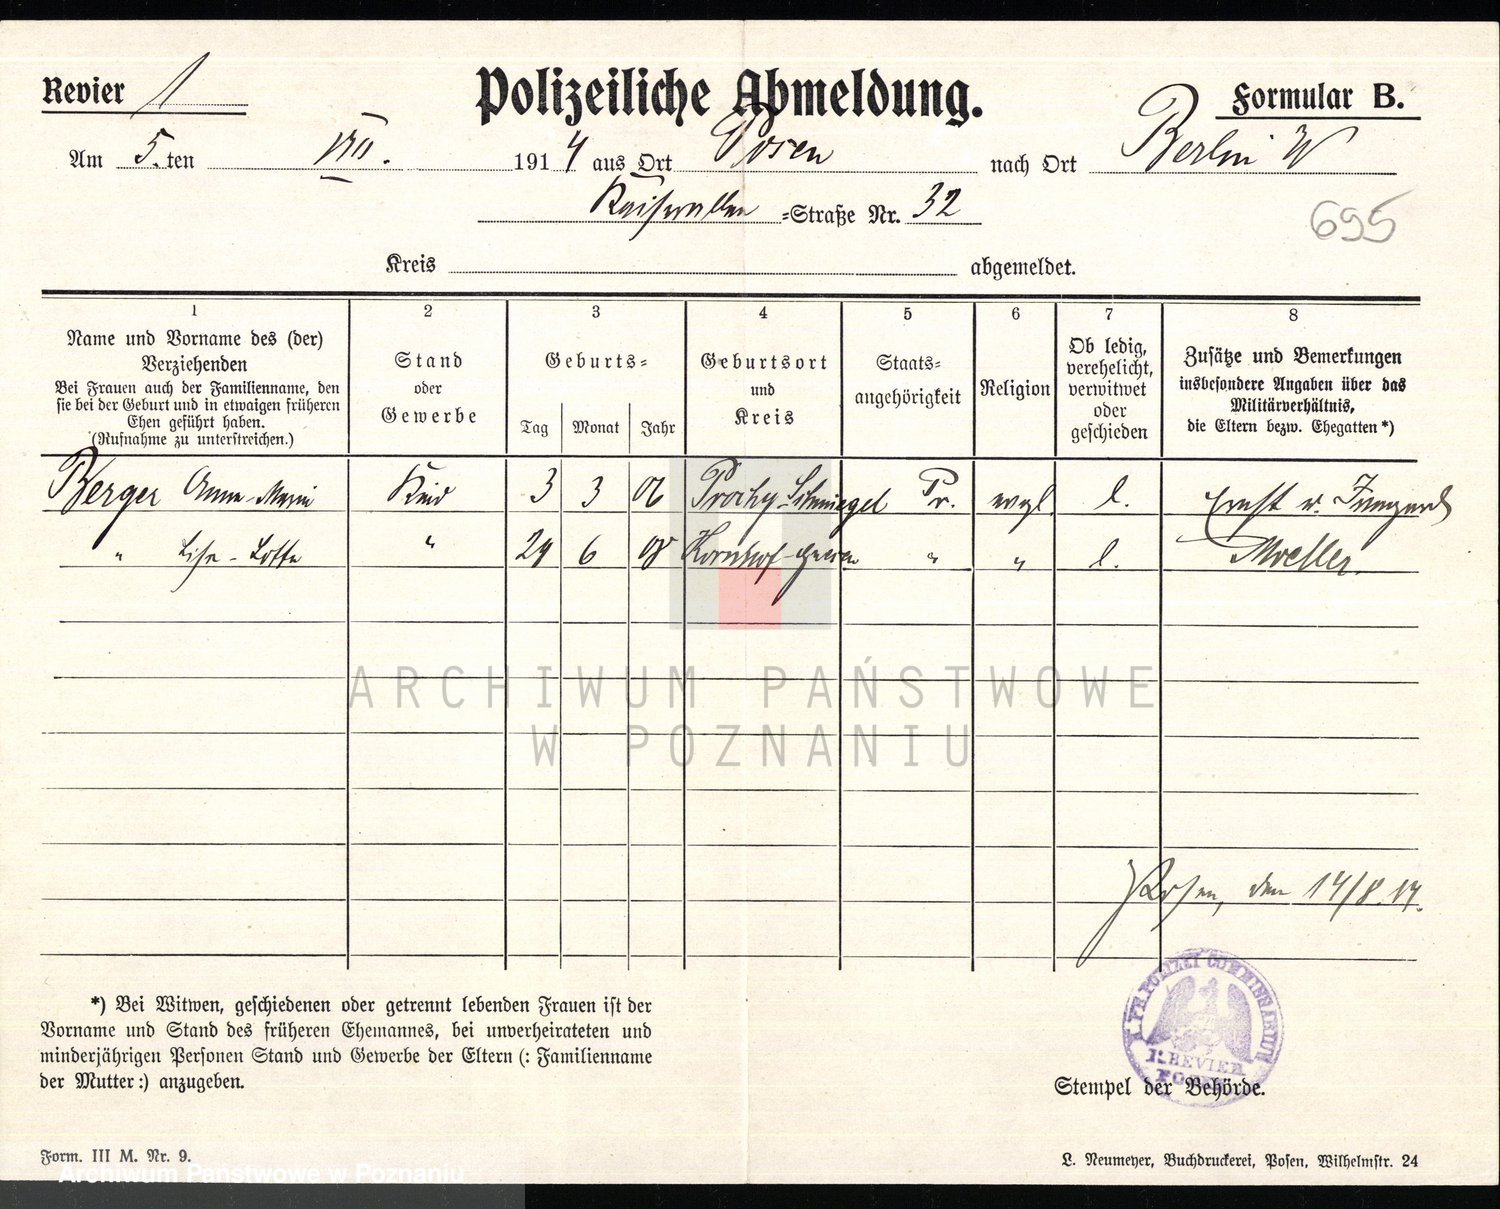 Revier 1
Polizeiliche Abmeldung.
Formular B.
Am 5. ten VIII. 1914 aus Ort Posen nach Ort Berlin W
Kaiserallee =Straße Nr. 32
695
Kreis abgemeldet.
1 2 3 4 5 6 7 8
Name und Vorname des (der)
Verziehenden
Bei Frauen auch der Familienname, den
sie bei der Geburt und in etwaigen früheren
Ehen geführt haben.
(Rufnahme zu unterstreichen.)
Stand
oder
Gewerbe
Geburts=
Tag Monat Jahr
Geburtsort
und
Kreis
Staats=
angehörigkeit
Religion
Ob ledig,
verehelicht,
verwitwet
oder
geschieden
Zusätze und Bemerkungen
insbesondere Angaben über das
Militärverhältnis,
die Eltern bezw. Ehegatten*)
Berger Anne-Marie Kind 3 3 06 Prochy-Schmiegel Pr. evgl. l. Ernst u. Irmgard
" Lise-Lotte " 29 6 08 " " l. Moeller.
Posen, den 14/8.14.
*) Bei Witwen, geschiedenen oder getrennt lebenden Frauen ist der
Vorname und Stand des früheren Ehemannes, bei unverheirateten und
minderjährigen Personen Stand und Gewerbe der Eltern (: Familienname
der Mutter:) anzugeben.
POLIZEI COMMISSARIAT
I. REVIER
POSEN
Stempel der Behörde.
Form. III M. Nr. 9.
L. Neumeyer, Buchdruckerei, Posen, Wilhelmstr. 24
ARCHIWUM PAŃSTWOWE
W POZNANIU
Archiwum Państwowe w Poznaniu